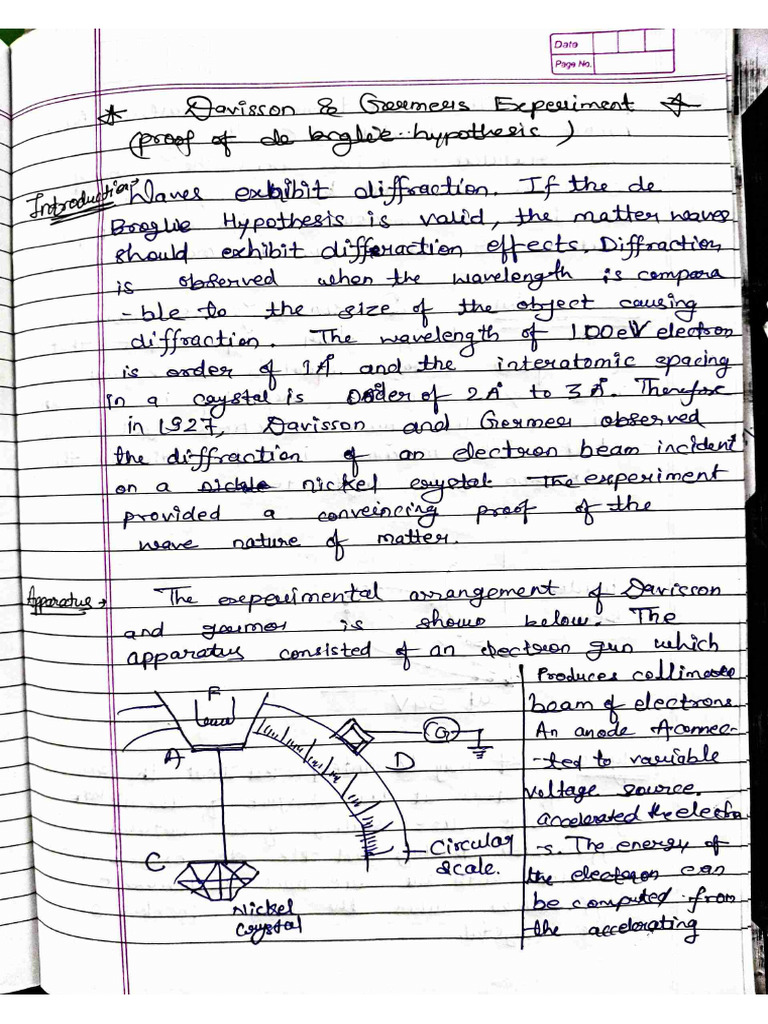 Date
Page No.
* Davisson & Germers Experiment *
(proof of de broglie hypothesis)
Introduction→ Waves exhibit diffraction. If the de
Broglie Hypothesis is valid, the matter waves
should exhibit diffraction effects. Diffraction
is observed when the wavelength is compara
-ble to the size of the object causing
diffraction. The wavelength of 100eV electron
is order of 1A° and the interatomic spacing
in a crystal is order of 2A° to 3A°. Therefore
in 1927, Davisson and Germer observed
the diffraction of an electron beam incident
on a nickel crystal. The experiment
provided a conveincing proof of the
wave nature of matter.
Apparatus→ The experimental arrangement of Davisson
and germer is shows below. The
apparatus consisted of an electron gun which
Produces collimate
beam of electrons
An anode A connec-
-ted to variable
voltage source.
accelerated the electro
-s. The energy of
the electron can
be computed from
the accelerating
F
G
A
D
C
Circular
scale.
Nickel
crystal